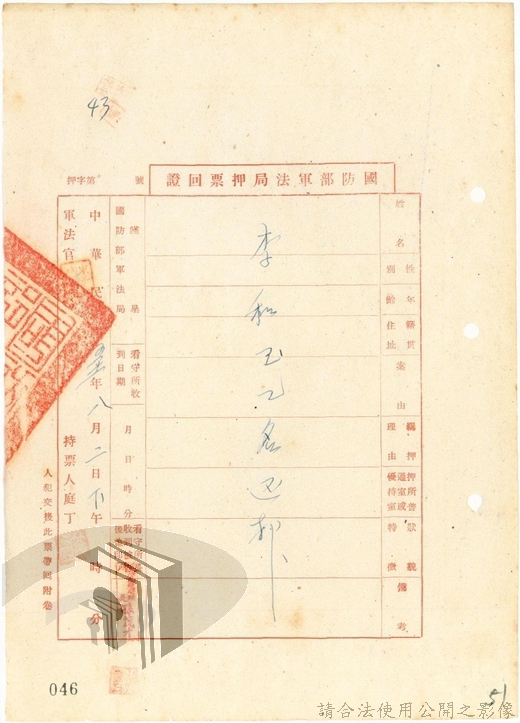 43
國防部軍法局押票回證
押字第 號
姓名
性別
年齡
籍貫
住址
案由
羈押理由
押所普通室或優待室
特徵
狀貌
備考
李和玉乙名送部
國防部軍法局
看守所收到日期
月 日 時 分
中華民 年八月二日下午 時 分
軍法官
持票人庭丁
人犯交後此票帶回附卷
046
51
請合法使用公開之影像